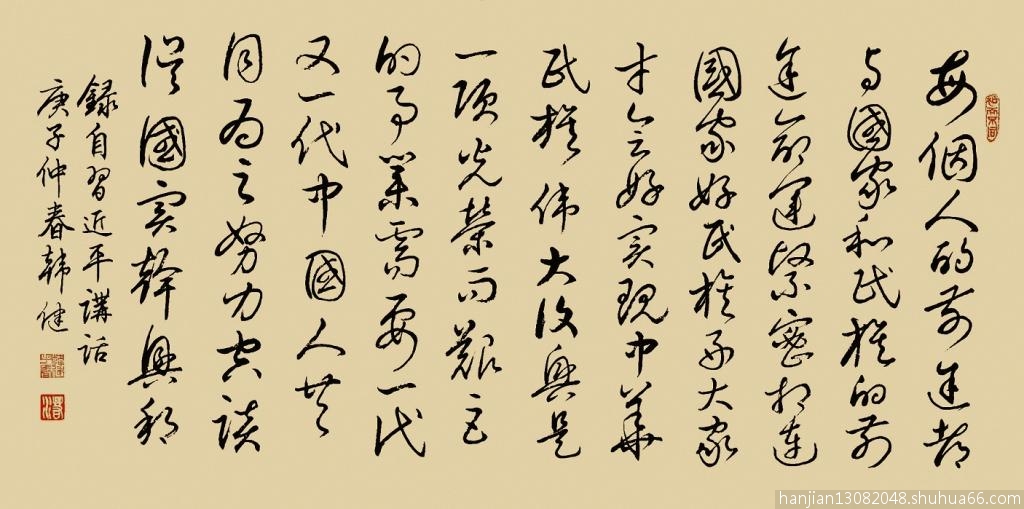 每個人的前途都
与國家和民族的前
途命運緊密相連
國家好民族好大家
才会好实現中華
民族伟大復興是
一項光荣而艱巨
的事業需要一代
又一代中國人共
同为之努力空談
误國实幹興邦
録自習近平講話
庚子仲春韩健
hanjian13082048.shuhua66.com